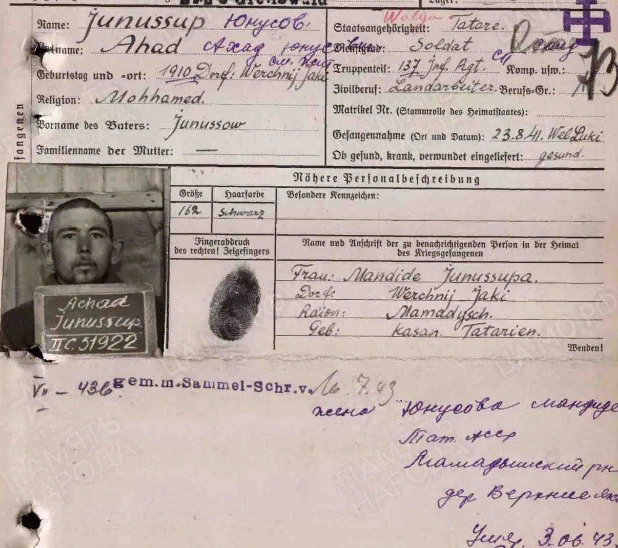 Name: Junussup Юнусов
Vorname: Ahad Ахад Юнус
Geburtstag und -ort: 1910 Dorf: Werchnij Jaki
Religion: Mohhamed.
Vorname des Vaters: Junussow
Familienname der Mutter: —
Staatsangehörigkeit: Tatare.
Wolga
Dienstgrad: Soldat
Truppenteil: 137 Inf. Rgt. Komp. usw.:
Zivilberuf: Landarbeiter. Berufs-Gr.:
Matrikel Nr. (Stammrolle des Heimatstaates):
Gefangennahme (Ort und Datum): 23.8.41. Wel Luki
Ob gesund, krank, verwundet eingeliefert: gesund.
fangenen
73
Nähere Personalbeschreibung
Größe Haarfarbe Besondere Kennzeichen:
162 Schwarz
Fingerabdruck
des rechten! Zeigefingers
Name und Anschrift der zu benachrichtigenden Person in der Heimat
des Kriegsgefangenen
Frau: Mandide Junussupa.
Dorf: Werchnij Jaki
Raion: Mamadysch.
Geb: Kasan. Tatarien.
Wenden!
Achad
Junussup
II C. 51922
VII - 43 gem.m.Sammel-Schr.v. 16.7.43
жена Юнусова Мандиде
Тат. АССР
Мамадышский рн
дер Верхние Яки
Умер 3.06.43
ПАМЯТЬ
НАРОДА